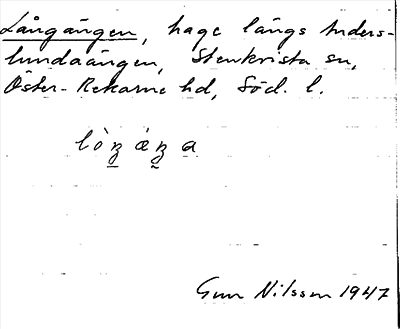 Långängen, hage längs Anders-
lundaängen, Stenkvista sn,
Öster-Rekarne hd, Söd. l.
Gun Nilsson 1947